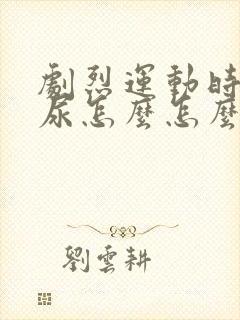 劇烈運動時
尿怎麼怎麼
劉雲耕